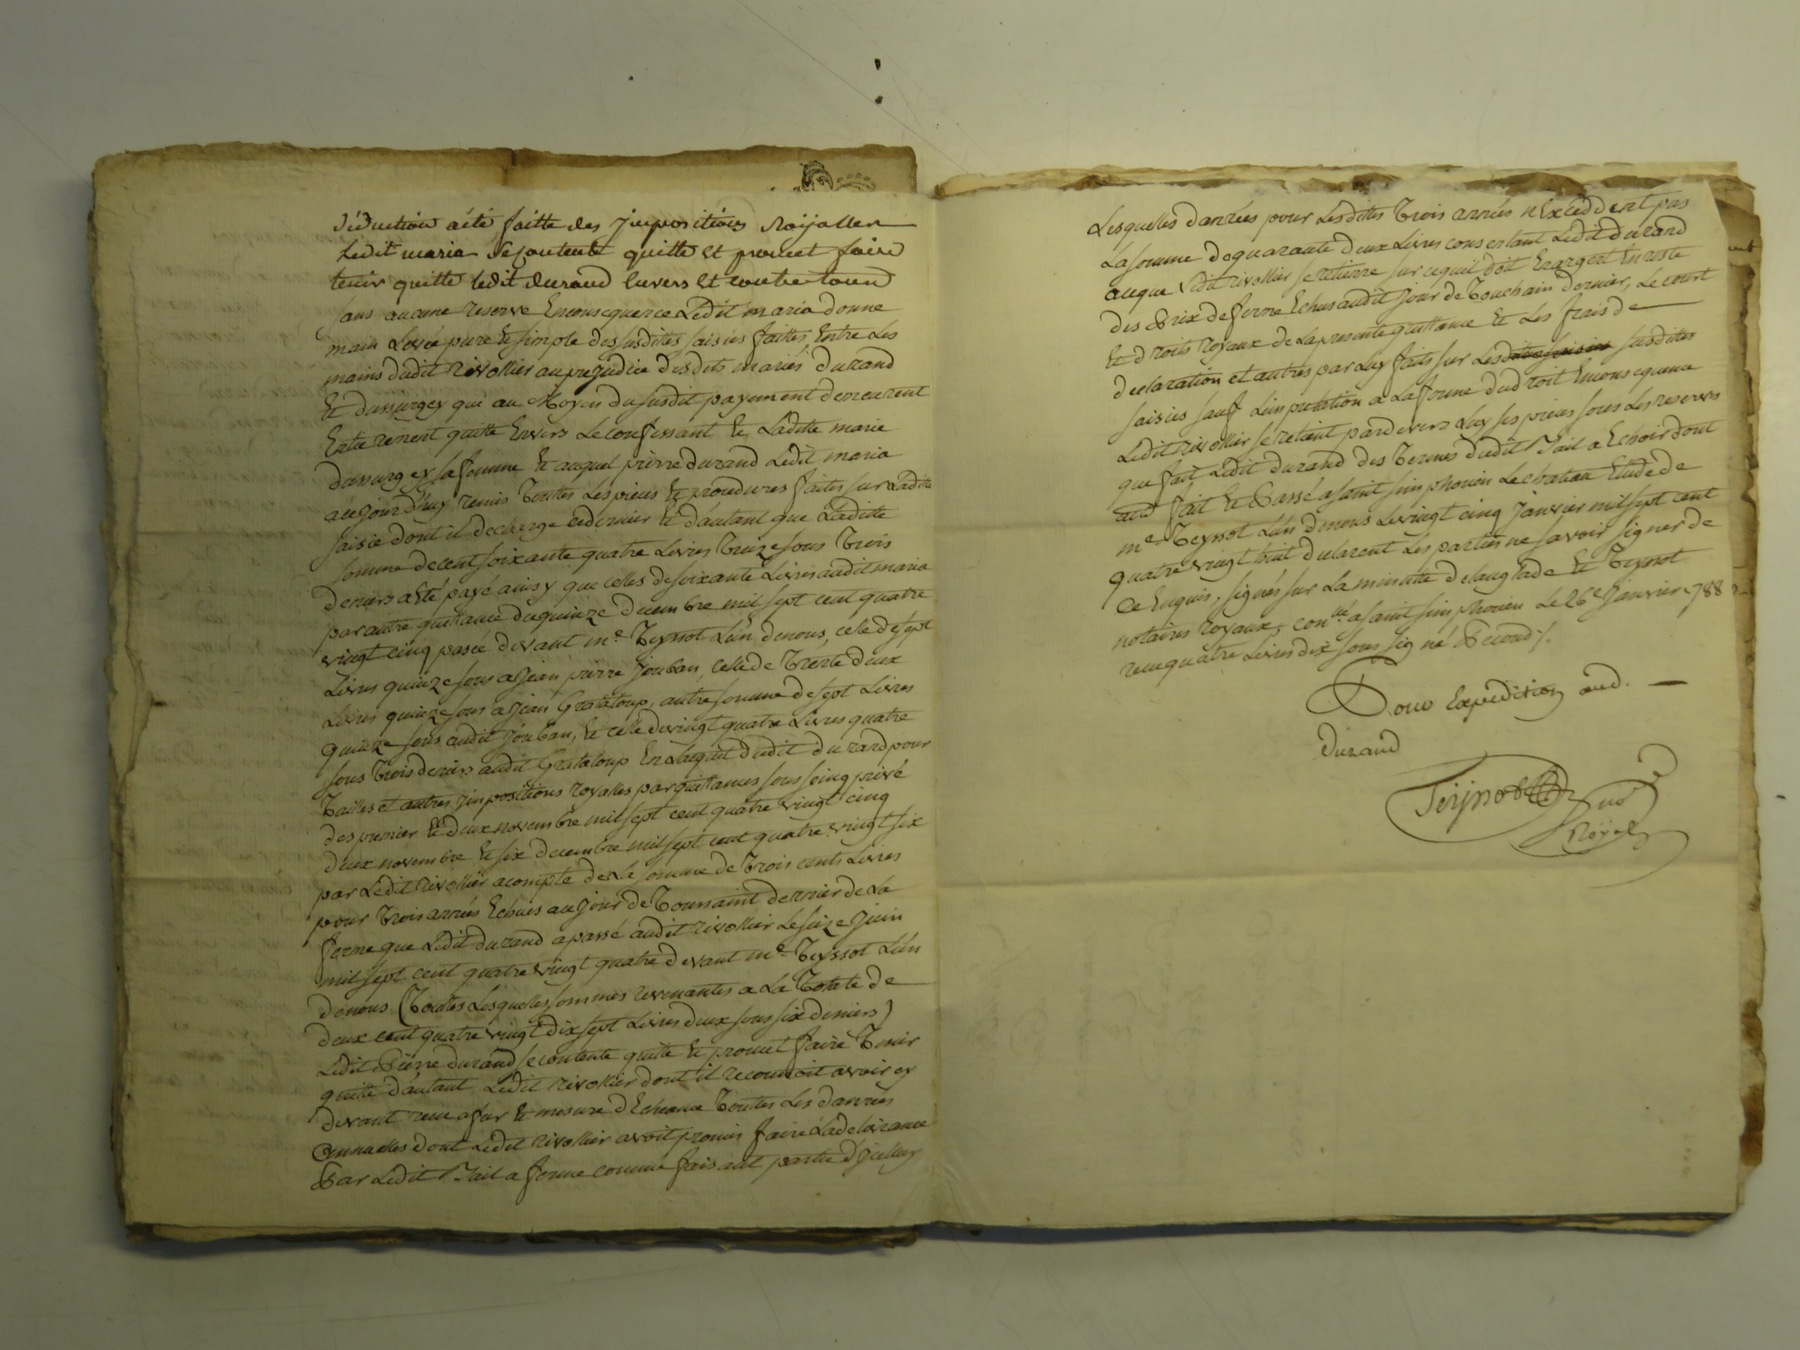 déduction a été faitte des Jmpositions Roÿalles
Ledit maria se Contente quitte et promet faire
tenir quitte ledit durand Envers et contre tous
sans aucune reserve Enconsequence Ledit maria donne
main Levée pure Et simple des susdittes saisies faittes Entre Les
mains dudit Rivollier au prejudice desdits mariés durand
Et dassurgey qui au Moyen du susdit payement demeurent
Entierement quitte Envers Le confessant Et Laditte marie
dassurgey sa femme Et auquel pierre durand Ledit maria
a cejourd'huy remis Touttes Les pieces Et procedures faites sur Ladite
saisie dont il decharge ce dernier Et d'autant que Laditte
somme de cent soixante quatre Livres Treize sous Trois
deniers a Eté payé ainsy que celles de soixante Livres audit maria
par autre quittance du quinze decembre mil sept cent quatre
vingt cinq passée devant me Teyssot L'un denous, celle de sept
Livres quinze sous a Jean pierre Jouban, celle de Trente deux
Livres quinze sous a Jean Grataloup, autre somme de sept Livres
quinze sous audit Jouban, Et celle de vingt quatre Livres quatre
sous Trois deniers audit Grataloup En Lacquit dudit durand pour
Tailles et autres Jmpositions Royalles par quittances sous seing privé
des premier Et deux novembre mil sept cent quatre vingt cinq
deux novembre Et six decembre mil sept cent quatre vingt six
par Ledit Rivollier acompte de La somme de Trois cents Livres
pour Trois années Echues au Jour de Toussaint dernier de La
ferme que Ledit durand a passé audit Rivollier Le seize Juin
mil sept cent quatre vingt quatre devant me Teyssot L'un
denous (Toutes Lesquelles sommes revenantes a La Totale de
deux cent quatre vingt dix sept Livres deux sous six deniers)
Ledit Pierre durand se contente quitte Et promet faire Tenir
quitte d'autant Ledit Rivollier dont il reconnoit avoir cy
devant recu a fur Et mesure d'Echeance Toutes Les danrées
annuelles dont Ledit Rivollier avoit promis faire La delivrance
Par Ledit Bail a ferme comme faisant partie d'Jcelluy
Lesquelles danrées pour Lesdites Trois années n'Exceddent pas
La somme de quarante deux Livres consentant Ledit durand
aceque Ledit Rivollier se retienne sur cequil doit En argent En reste
des Prix de ferme Echus audit Jour de Toussaint dernier, Le court
Et droits royaux de La presente quittance Et Les frais de
declaration et autres par Luy faits sur Les susdites
saisies sauf L'imputation a La forme du droit Enconsequence
Ledit Rivollier se retient pardevers Luy ses pieces sous Les reserves
que fait Ledit durand des Termes dudit Bail a Echoir dont
acte fait Et Passé a saint simphorien Le chateau Etude de
me Teyssot L'un denous Le vingt cinq Janvier mil sept cent
quatre vingt huit declarent Les parties ne savoir signer de
ce Enquis, signés sur La minutte delanglade Et Teyssot
notaires Royaux, conllé a saint simphorien Le 26e Janvier 1788
recu quatre Livres dix sous signé Picond /.
Pour Expedition aud.
durand
Teyssot
Nore
Royal